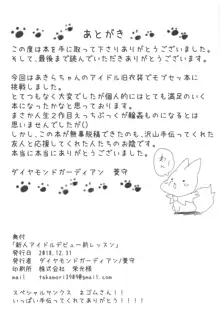 あとがき
この度は本を手に取って下さりありがとうございました。
そして、最後まで読んでいただきありがとうございます。
今回はあきらちゃんのアイドル旧衣装でモブセッ本に
挑戦しました。
とてつもなく大変でしたが個人的にはとても満足のいく
本になったかなと思っております。
まさか人生2作目えっちぶっくが輪姦ものになるとは
思いませんでしたが…
しかし、この本が無事脱稿できたのも、沢山手伝ってくれた
友人と応援してくれた人たちのお陰です。
本当に本当にありがとうございました。
ダイヤモンドガーディアン 葵守
わぁい!
奥付
「新人アイドルデビュー前レッスン」
発行日 2018.12.31
発行者 ダイヤモンドガーディアン/葵守
印刷所 株式会社 栄光様
mail takamori3989@gmail.com
スペシャルサンクス ネゴムさん!!
いっぱい手伝ってくれてありがとう!!